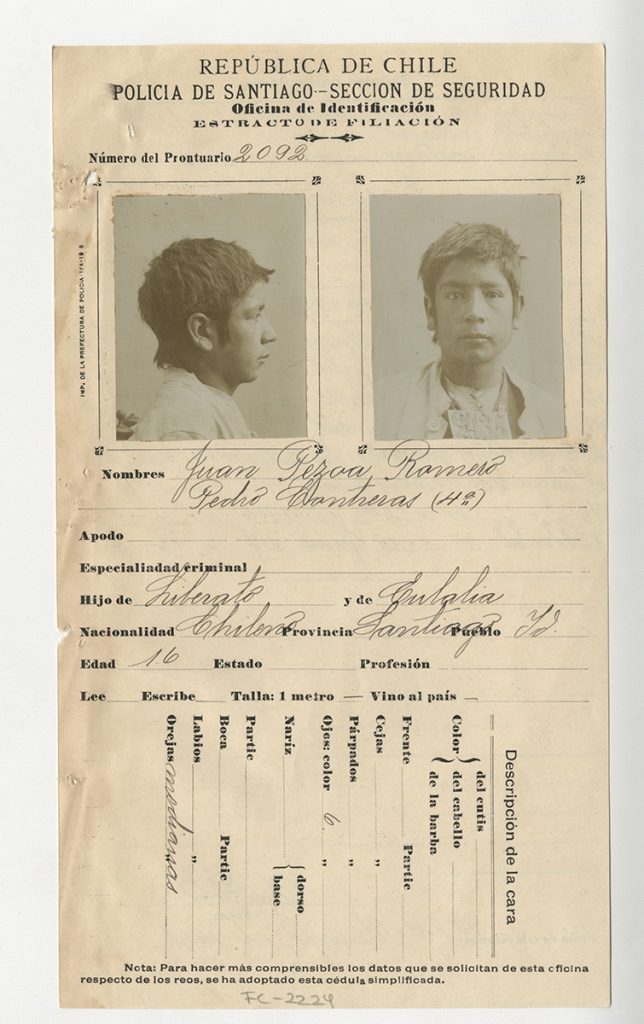 REPÚBLICA DE CHILE
POLICIA DE SANTIAGO--SECCION DE SEGURIDAD
Oficina de Identificación
ESTRACTO DE FILIACIÓN
Número del Prontuario 2092
Nombres Juan Pezoa Romero
Pedro Contreras (4º)
Apodo
Especialiadad criminal
Hijo de Liberato y de Eulalia
Nacionalidad Chileno Provincia Santiago Pueblo Id.
Edad 16 Estado Profesión
Lee Escribe Talla: 1 metro — Vino al país —
Descripción de la cara
Color del cutis
del cabello
de la barba
Frente Partic
Cejas „
Párpados „
Ojos: color 6 „
Naríz dorso
base
Partic
Boca Partic
Labios „
Orejas medianas „
Nota: Para hacer más comprensibles los datos que se solicitan de esta oficina
respecto de los reos, se ha adoptado esta cédula simplificada.
FC-2224